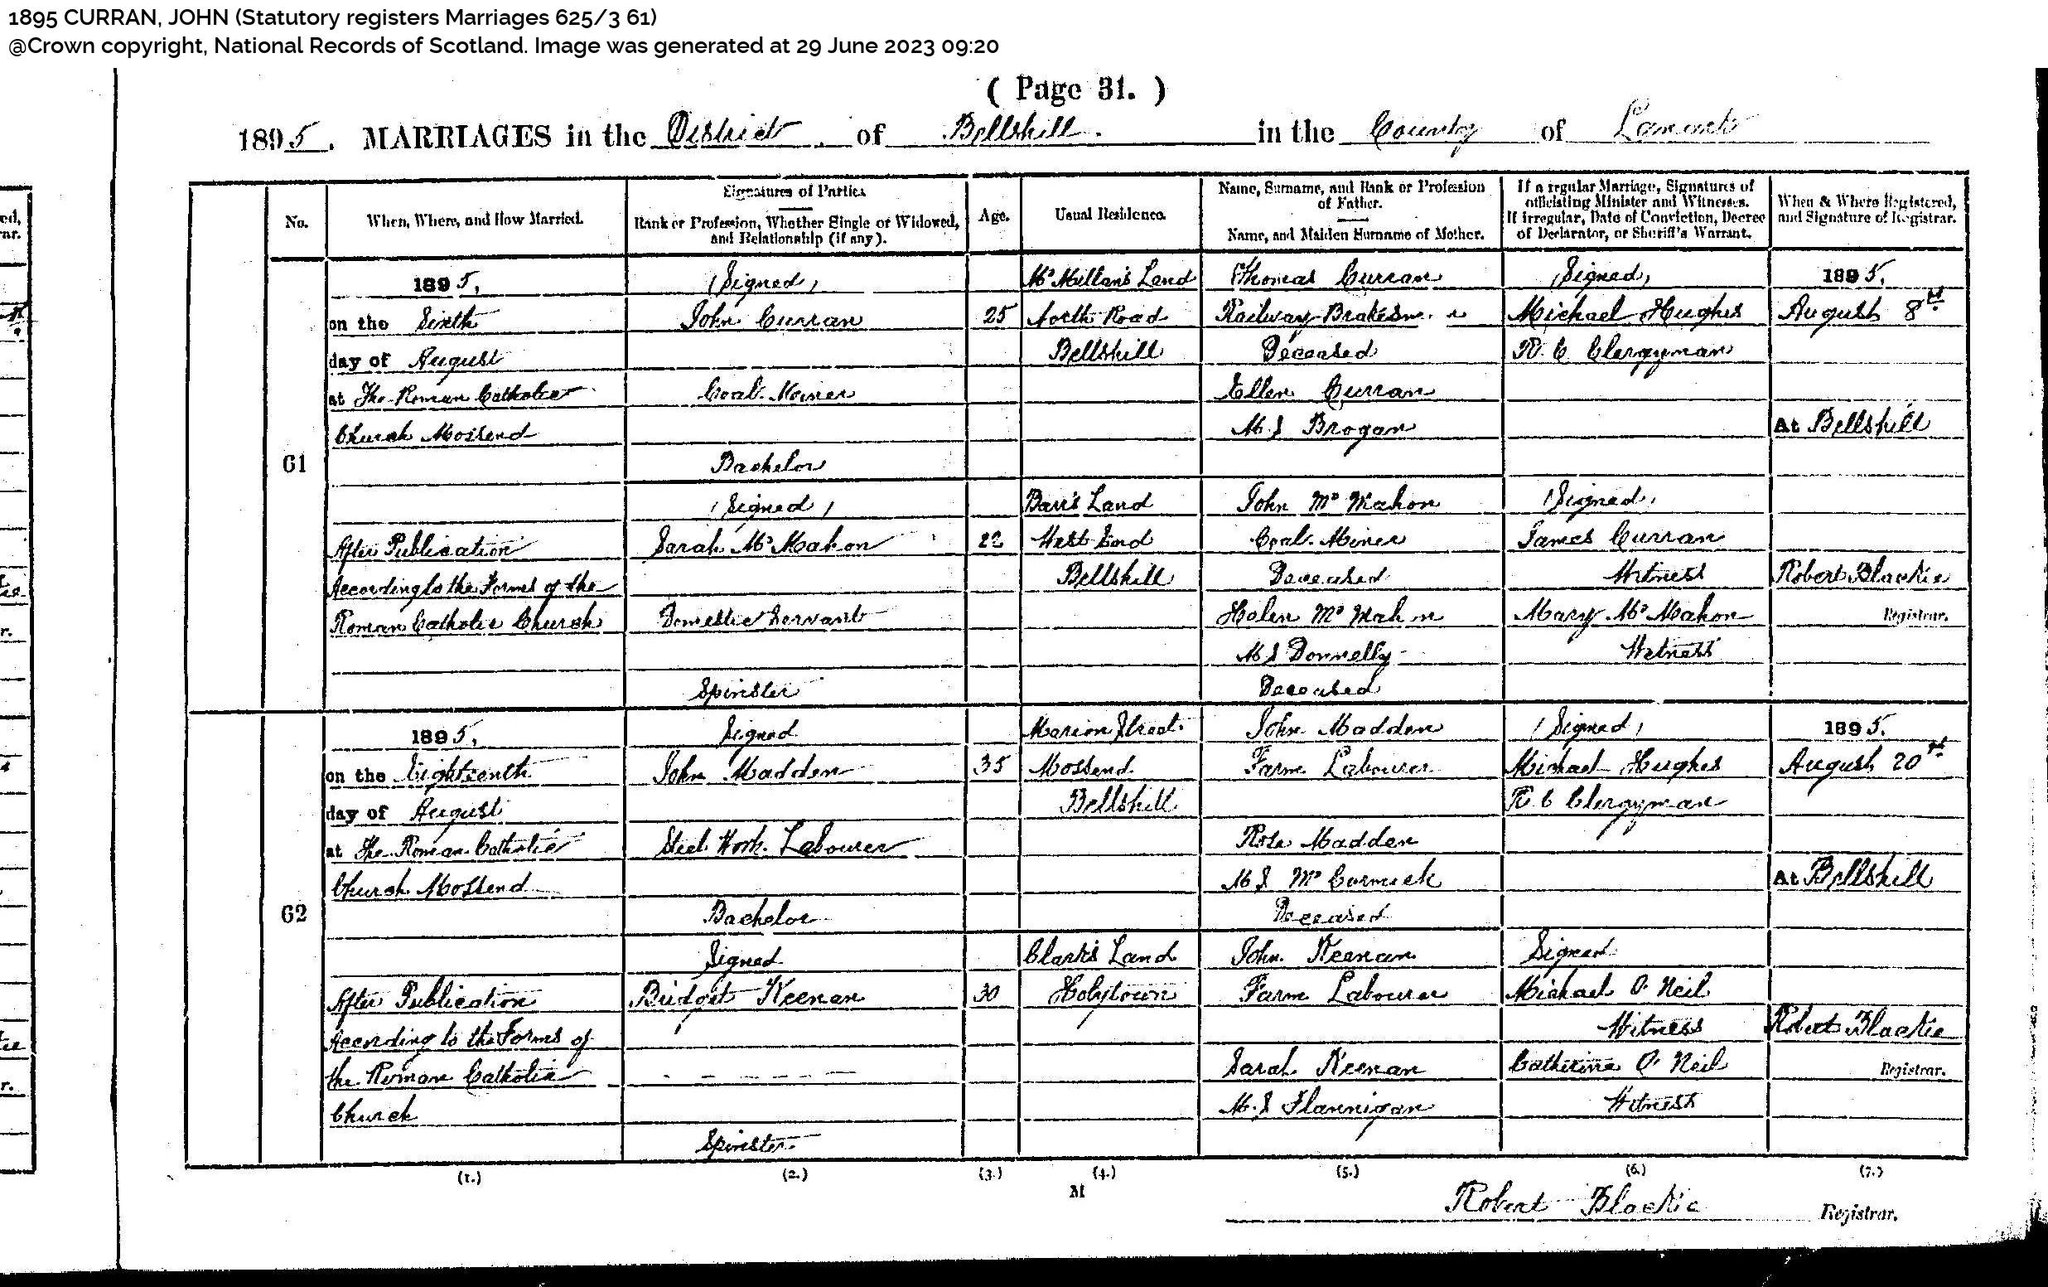 1895 CURRAN, JOHN (Statutory registers Marriages 625/3 61)
@Crown copyright, National Records of Scotland. Image was generated at 29 June 2023 09:20
( Page 31. )
1895. MARRIAGES in the District of Bellshill. in the County of Lanark
No.
When, Where, and How Married.
Signatures of Parties.
Rank or Profession, Whether Single or Widowed,
and Relationship (if any).
Age.
Usual Residence.
Name, Surname, and Rank or Profession
of Father.
Name, and Maiden Surname of Mother.
If a regular Marriage, Signatures of
officiating Minister and Witnesses.
If irregular, Date of Conviction, Decree
of Declarator, or Sheriff's Warrant.
When & Where Registered,
and Signature of Registrar.
61
1895,
on the Sixth
day of August
at The Roman Catholic
Church Mossend
After Publication
According to the Forms of the
Roman Catholic Church
(Signed)
John Curran
Coal Miner
Bachelor
(Signed)
Sarah McMahon
Domestic Servant
Spinster
25
22
McMillan's Land
North Road
Bellshill
Barr's Land
West End
Bellshill
Thomas Curran
Railway Brakesman
Deceased
Ellen Curran
M.S Brogan
John McMahon
Coal Miner
Deceased
Helen McMahon
M S Donnelly
Deceased
(Signed)
Michael Hughes
R. C Clergyman
(Signed)
James Curran
Witness
Mary McMahon
Witness
1895.
August 8th
At Bellshill
Robert Blackie
Registrar.
62
1895,
on the Eighteenth
day of August
at The Roman Catholic
Church Mossend
After Publication
According to the Forms of
the Roman Catholic
Church
Signed
John Madden
Steel Work Labourer
Bachelor
Signed
Bridget Keenan
Spinster.
35
30
Marion Street
Mossend
Bellshill
Clark's Land
Holytown
John Madden
Farm Labourer
Rose Madden
M S McCormick
Deceased
John Keenan
Farm Labourer
Sarah Keenan
M.S Flannigan
(Signed)
Michael Hughes
R C Clergyman
Signed
Michael O'Neil
Witness
Catherine O'Neil
Witness
1895.
August 20th
At Bellshill
Robert Blackie
Registrar.
(1.) (2.) (3.) (4.) (5.) (6.) (7.)
M
Robert Blackie Registrar.